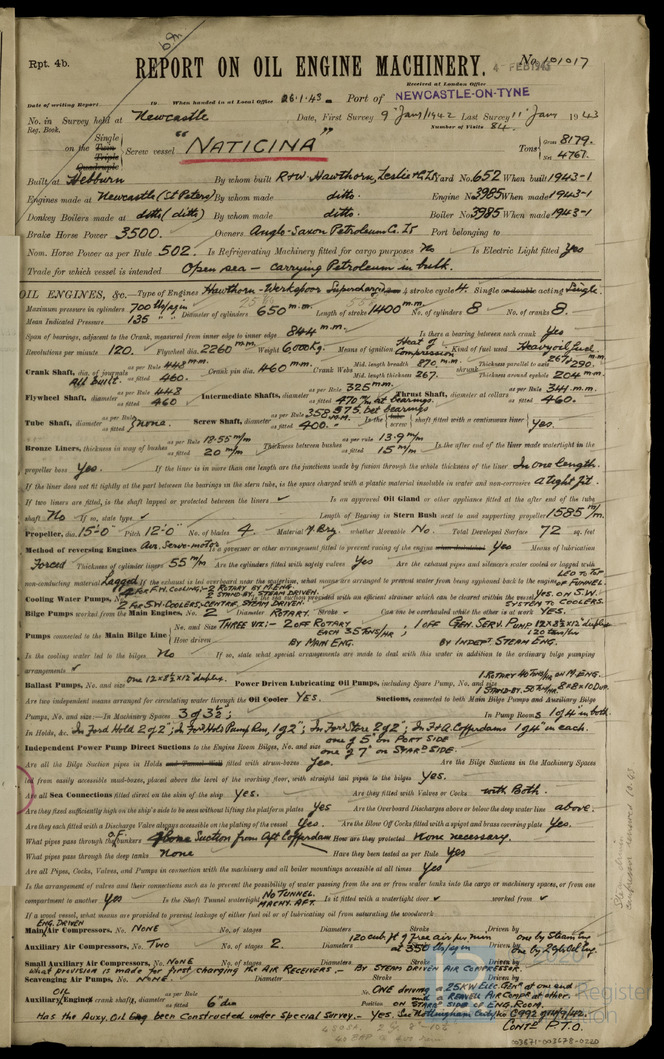 Rpt. 4b.
REPORT ON OIL ENGINE MACHINERY.
No. 101017
4 FEB 1943
Received at London Office
Date of writing Report 19 When handed in at Local Office 26.1.43 Port of NEWCASTLE-ON-TYNE
No. in Reg. Book. Survey held at Newcastle Date, First Survey 9 Jany 1942 Last Survey 11 Jany 1943
Number of Visits 84
on the Single Twin Triple Quadruple Screw vessel "NATICINA" Tons Gross 8179. Net 4767.
Built at Hebburn By whom built R & W Hawthorn, Leslie & Co Ld Yard No. 652 When built 1943-1
Engines made at Newcastle (St Peters) By whom made ditto. Engine No. 3985 When made 1943-1
Donkey Boilers made at ditto (ditto) By whom made ditto. Boiler No. 3985 When made 1943-1
Brake Horse Power 3500. Owners Anglo-Saxon Petroleum Co. Ld Port belonging to
Nom. Horse Power as per Rule 502. Is Refrigerating Machinery fitted for cargo purposes No Is Electric Light fitted Yes
Trade for which vessel is intended Open sea - carrying Petroleum in bulk.
OIL ENGINES, &c. Type of Engines Hawthorn-Werkspoor Supercharging 4 stroke cycle 4. Single or double acting Single.
Maximum pressure in cylinders 700 lbs/sq in Diameter of cylinders 650 m.m. Length of stroke 1400 m.m. No. of cylinders 8 No. of cranks 8.
Mean Indicated Pressure 135
Span of bearings, adjacent to the Crank, measured from inner edge to inner edge 844 m.m. Is there a bearing between each crank Yes
Revolutions per minute 120. Flywheel dia. 2260 m.m. Weight 6,000 Kg. Means of ignition Heat of Compression Kind of fuel used Heavy oil fuel
Crank Shaft, dia. of journals as per Rule 448 m.m. as fitted 460. Crank pin dia. 460 m.m. Crank Webs Mid. length breadth 870. m.m. Mid. length thickness 267. shrunk Thickness parallel to axis 267 & 290. m.m. Thickness around eyehole 204 m.m.
All built.
Flywheel Shaft, diameter as per Rule 448 as fitted 460 Intermediate Shafts, diameter as per Rule 325 m.m. as fitted 470 m/m at bearings. 375. bet bearings Thrust Shaft, diameter at collars as per Rule 341 m.m. as fitted 460.
Tube Shaft, diameter as per Rule as fitted none. Screw Shaft, diameter as per Rule 358 m.m. as fitted 400. Is the tube screw shaft fitted with a continuous liner Yes.
Bronze Liners, thickness in way of bushes as per Rule 18.55 m/m as fitted 20 m/m Thickness between bushes as per rule 13.9 m/m as fitted 15 m/m Is the after end of the liner made watertight in the
propeller boss Yes. If the liner is in more than one length are the junctions made by fusion through the whole thickness of the liner In one length.
If the liner does not fit tightly at the part between the bearings in the stern tube, is the space charged with a plastic material insoluble in water and non-corrosive a tight fit.
If two liners are fitted, is the shaft lapped or protected between the liners ✓ Is an approved Oil Gland or other appliance fitted at the after end of the tube
shaft No If so, state type ✓ Length of Bearing in Stern Bush next to and supporting propeller 1585 m/m.
Propeller, dia. 15'-0" Pitch 12'-0" No. of blades 4. Material M Brz. whether Moveable No. Total Developed Surface 72 sq. feet
Method of reversing Engines Air Servo-motor Is a governor or other arrangement fitted to prevent racing of the engine when declutched Yes Means of lubrication
Forced Thickness of cylinder liners 55 m/m Are the cylinders fitted with safety valves Yes Are the exhaust pipes and silencers water cooled or lagged with
non-conducting material Lagged If the exhaust is led overboard near the waterline, what means are arranged to prevent water from being syphoned back to the engine LED TO TOP OF FUNNEL.
Cooling Water Pumps, No. 2 FOR F.W. COOLING:- 2 ROTARY BY M.ENG. 2 STAND BY, STEAM DRIVEN. 2 FOR S.W. COOLERS, CENTRF, STEAM DRIVEN. Is the sea suction provided with an efficient strainer which can be cleared within the vessel YES. ON S.W. SYSTEM TO COOLERS.
Bilge Pumps worked from the Main Engines, No. 2 Diameter ROTARY. Stroke ✓ Can one be overhauled while the other is at work YES.
Pumps connected to the Main Bilge Line No. and Size THREE VIZ:- 2 OFF ROTARY EACH 35 TONS/HR ; 1 OFF GEN. SERV. PUMP 12 X 8½ X 12" duplex 120 tons/hr
How driven BY MAIN ENG. BY INDEPT STEAM ENG.
Is the cooling water led to the bilges No If so, state what special arrangements are made to deal with this water in addition to the ordinary bilge pumping
arrangements ✓
Ballast Pumps, No. and size one 12 X 8½ X 12" duplex. Power Driven Lubricating Oil Pumps, including Spare Pump, No. and size 1 ROTARY 40 TONS/HR ON M. ENG. 1 STAND-BY. 50 TONS/HR 8 X 8 X 10 DUP.
Are two independent means arranged for circulating water through the Oil Cooler YES. Suctions, connected to both Main Bilge Pumps and Auxiliary Bilge
Pumps, No. and size:—In Machinery Spaces 3 of 3½"; In Pump Rooms 1 of 4" in both.
In Holds, &c. In Ford Hold 2 of 2"; In Ford Hold Pump Rm, 1 of 2"; In Ford Store 2 of 2"; In F & A Cofferdams 1 of 4" in each.
Independent Power Pump Direct Suctions to the Engine Room Bilges, No. and size one of 5" on PORT SIDE one of 7" ON STARD SIDE.
Are all the Bilge Suction pipes in Holds and Tunnel Well fitted with strum-boxes Yes. Are the Bilge Suctions in the Machinery Spaces
led from easily accessible mud-boxes, placed above the level of the working floor, with straight tail pipes to the bilges Yes.
Are all Sea Connections fitted direct on the skin of the ship Yes. Are they fitted with Valves or Cocks with Both.
Are they fixed sufficiently high on the ship's side to be seen without lifting the platform plates Yes Are the Overboard Discharges above or below the deep water line above.
Are they each fitted with a Discharge Valve always accessible on the plating of the vessel Yes. Are the Blow Off Cocks fitted with a spigot and brass covering plate Yes.
What pipes pass through the bunkers Suction from Aft Cofferdam How are they protected None necessary.
What pipes pass through the deep tanks None Have they been tested as per Rule Yes
Are all Pipes, Cocks, Valves, and Pumps in connection with the machinery and all boiler mountings accessible at all times Yes
Is the arrangement of valves and their connections such as to prevent the possibility of water passing from the sea or from water tanks into the cargo or machinery spaces, or from one
compartment to another Yes Is the Shaft Tunnel watertight NO TUNNEL. MACHY. AFT. Is it fitted with a watertight door ✓ worked from ✓
If a wood vessel, what means are provided to prevent leaking of either fuel oil or lubricating oil from saturating the woodwork
ENG. DRIVEN Main Air Compressors, No. NONE No. of stages Diameters Stroke Driven by
Auxiliary Air Compressors, No. TWO No. of stages 2. Diameters 120 cub. ft of Free air per min at 350 lbs/sq in Stroke Driven by one by Steam Eng one by 2 cyl. Oil Eng.
Small Auxiliary Air Compressors, No. NONE No. of stages Diameters Stroke Driven by
What provision is made for first charging the AIR RECEIVERS - BY STEAM DRIVEN AIR COMPRESSOR.
Scavenging Air Pumps, No. NONE. Diameter Stroke Driven by
OIL Auxiliary Engines crank shafts, diameter as per Rule as fitted 6" dia No. ONE driving a 25KW Elec. Gen at one end and a REAVELL AIR COMPR at other.
Position ON STARD SIDE OF ENG. ROOM.
Has the Auxy. Oil Eng been Constructed under Special Survey. - YES. See Nottingham Certf No C.992
Contd P.T.O.
003671-003678-0220